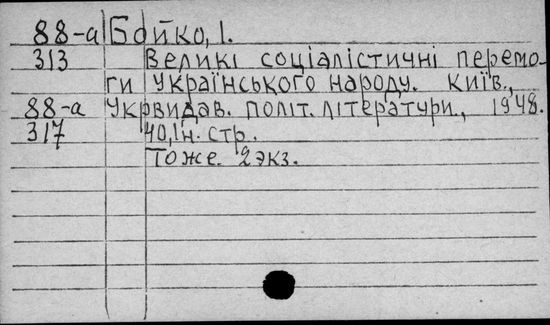 88-а Бойко, І.
313 Великі соціалістичні перемо-
ги українського народу. Київ.,
88-а Укрвидав. політ. літератури., 1948.
317 40, 1н. стр.
Тоже. 2 экз.